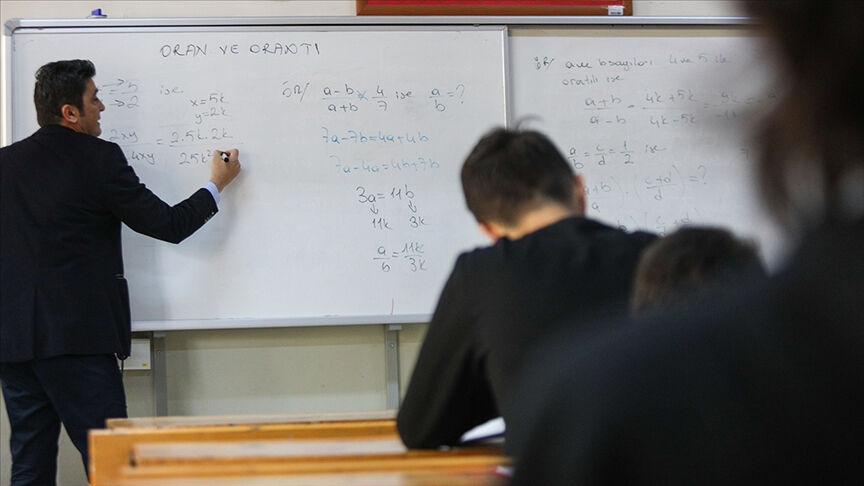 ORAN VE ORANTI
5
2
ise.
x=5k
y=2k
2xy
4xy
= 2.5k.2k
25k²
ÖR/ a-b/a+b = 4/7 ise a/b = ?
7a-7b=4a+4b
7a-4a=4b+7b
3a=11b
11k 3k
a/b = 11k/3k
ÖR/ a ve b sayıları 4 ve 5 ile
orantılı ise
a+b/a-b = 4k+5k/4k-5k = 9k
a/b = c/d = 1/2 ise
(c+d/d) = ?